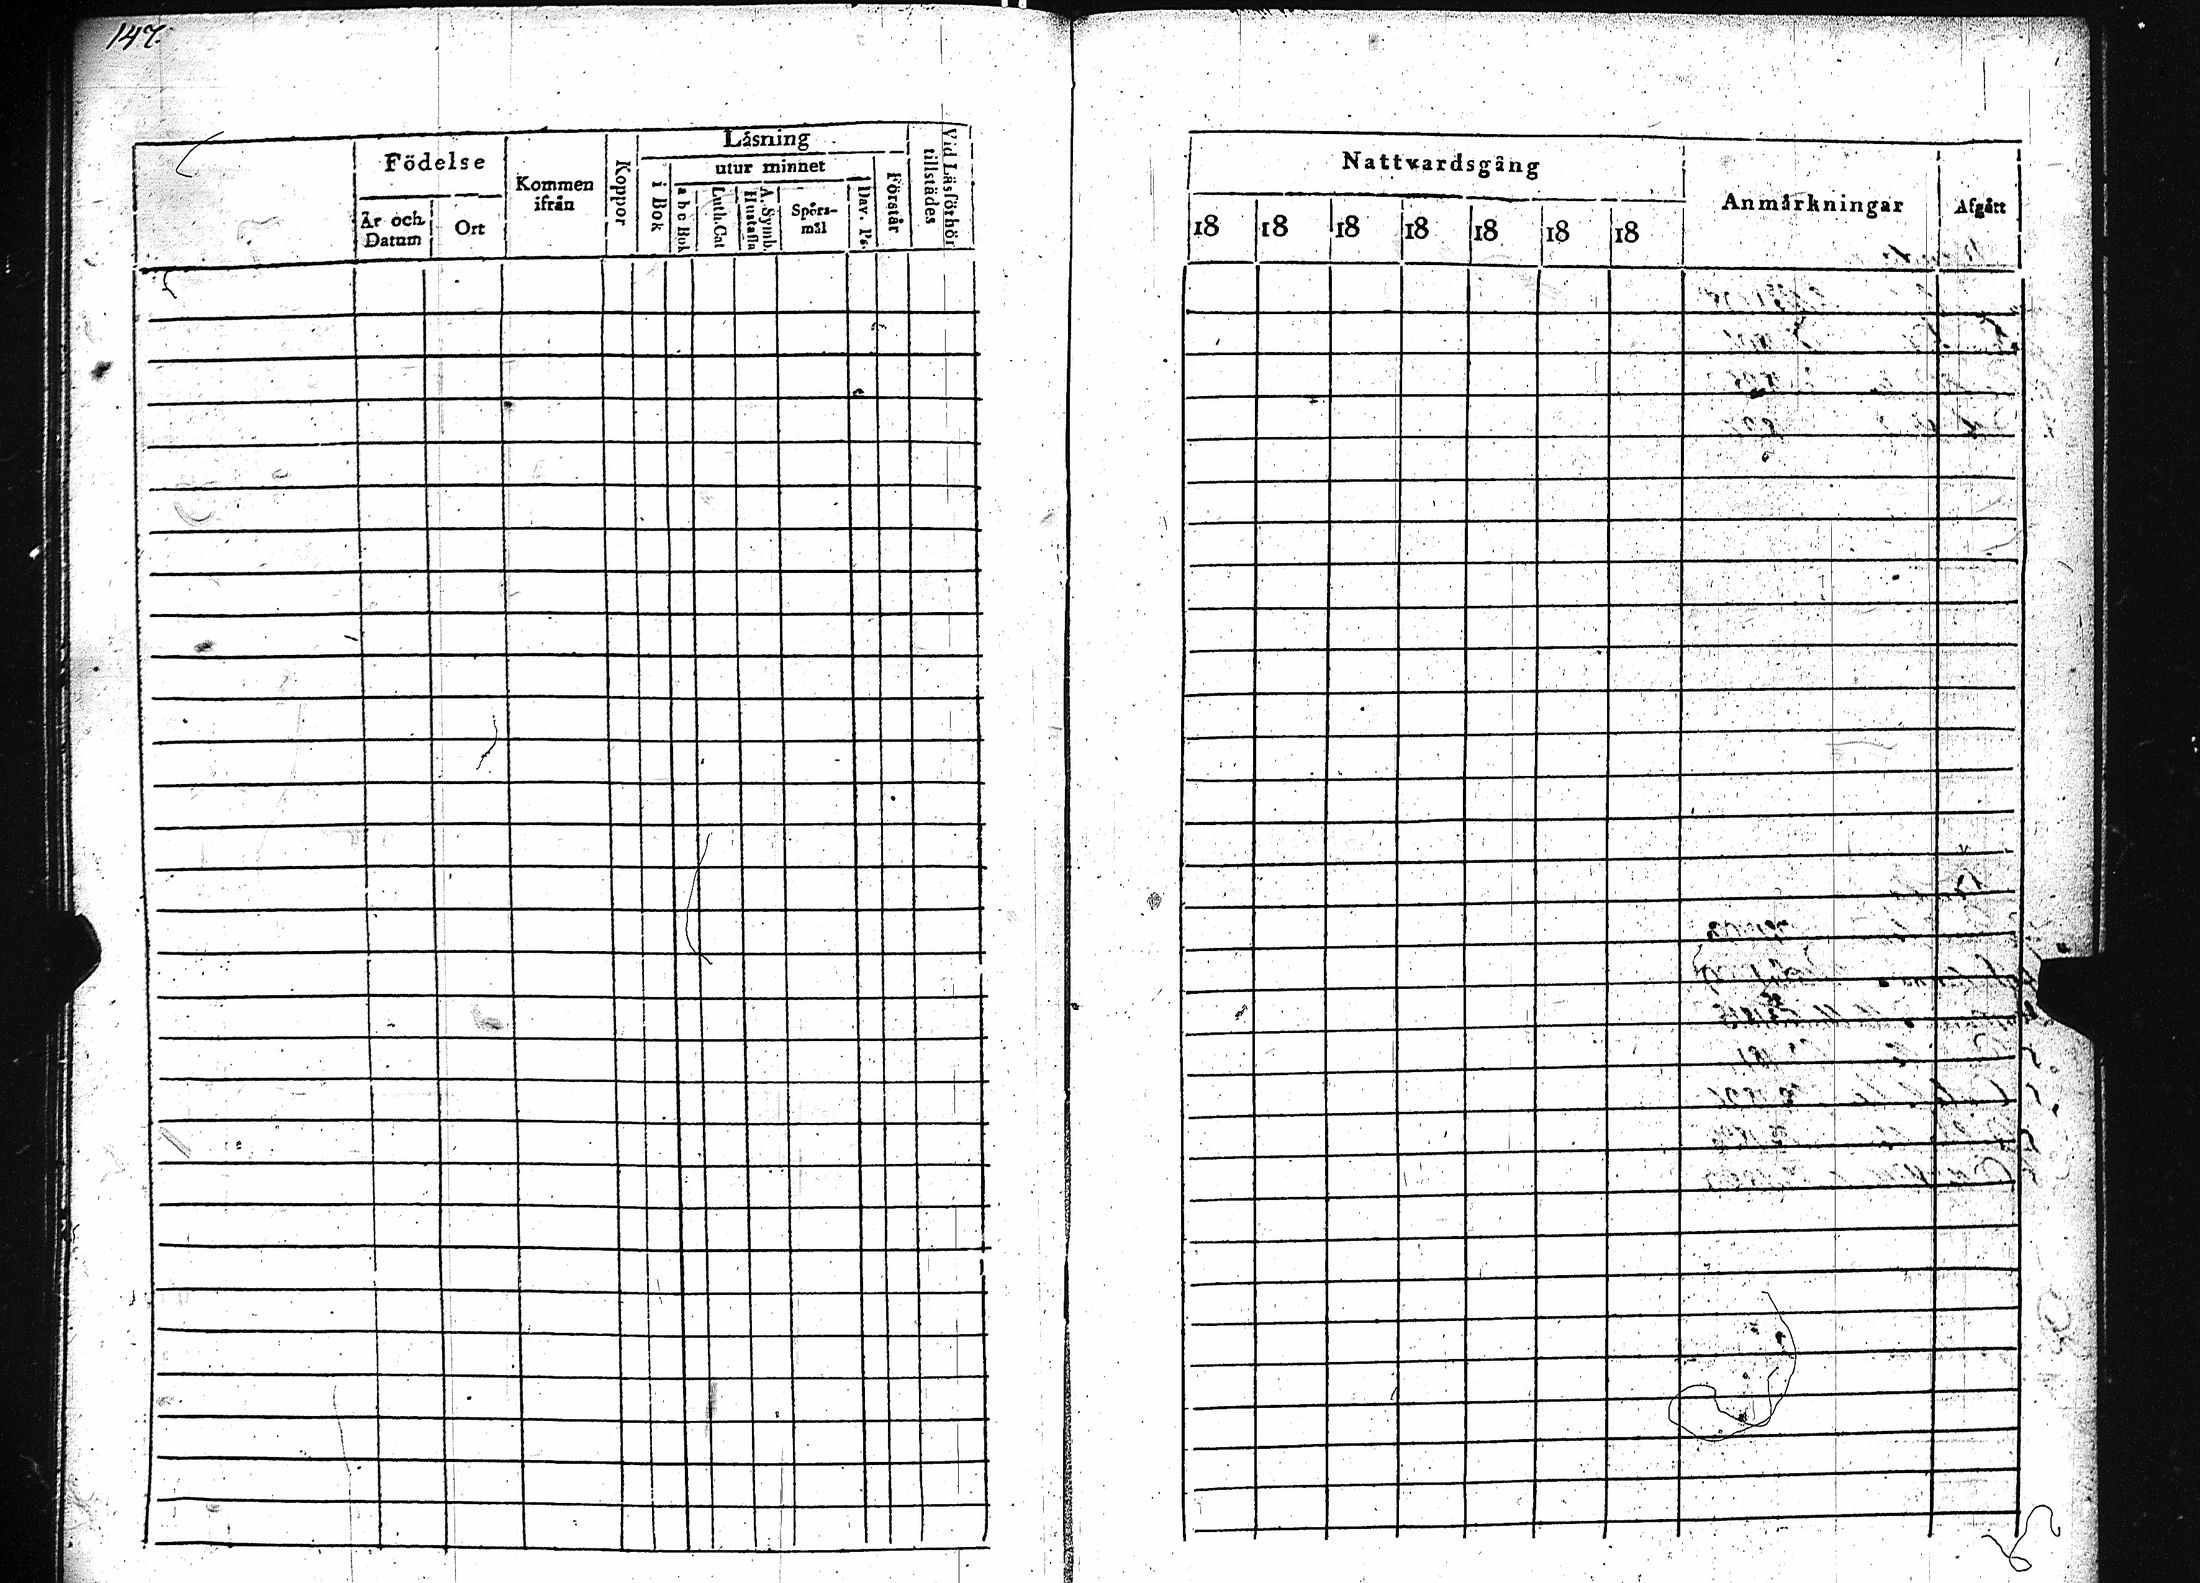 147.
Födelse
År och Datum
Ort
Kommen ifrån
Koppor
Läsning
i Bok
utur minnet
a b c Bok
Luth. Cat
A. Symb. Hustafla
Spörs-mål
Dav. Ps.
Förstår
Vid Läsförhör tillstädes
Nattvardsgång
18 18 18 18 18 18 18
Anmärkningar
Afgått